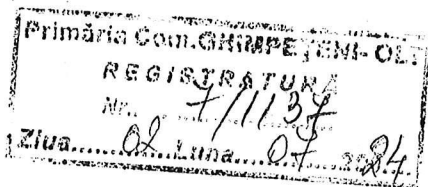 Primăria Com. GHIMPEŢENI-OLT
REGISTRATURA
Nr. 7/1137
Ziua 02 Luna 07 2024